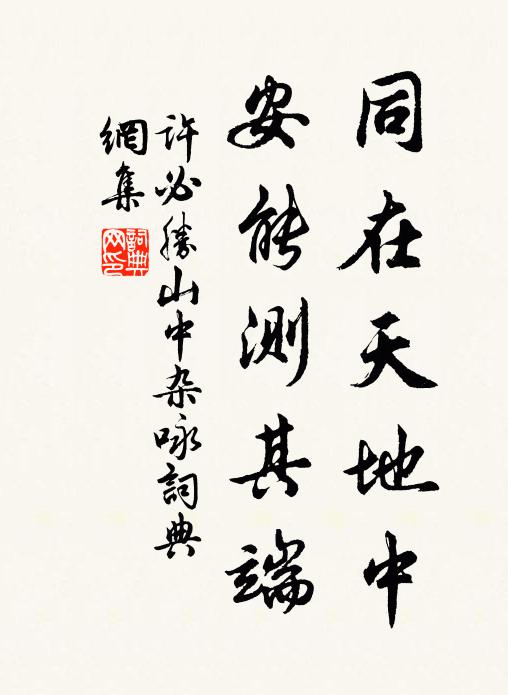 同在天地中
安能測其端
许必勝山中杂咏詞典
網集
詞典
网印